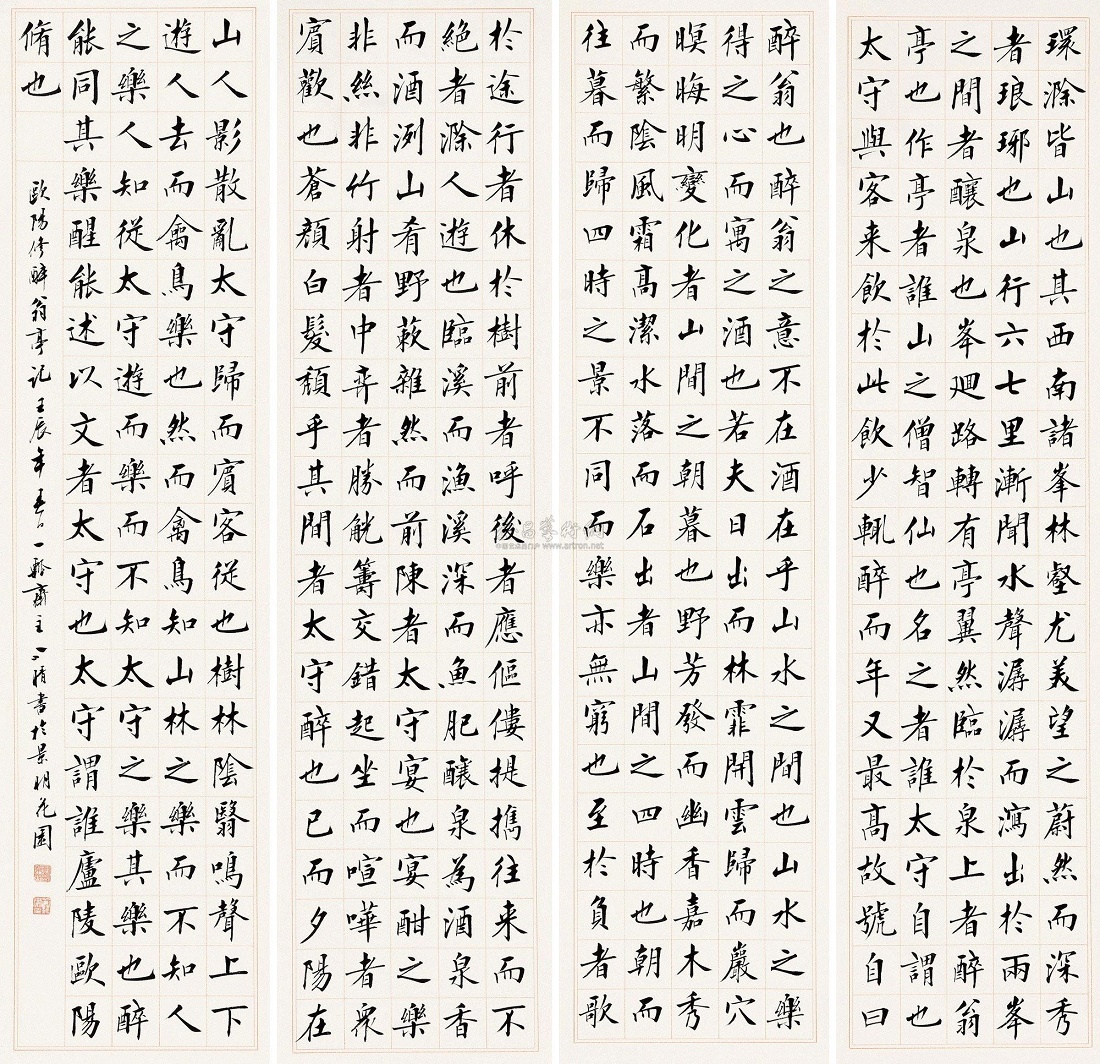 環滁皆山也其西南諸峯林壑尤美望之蔚然而深秀
者琅琊也山行六七里漸聞水聲潺潺而瀉出於兩峯
之間者釀泉也峯迴路轉有亭翼然臨於泉上者醉翁
亭也作亭者誰山之僧智仙也名之者誰太守自謂也
太守與客来飲於此飲少輒醉而年又最高故號自曰
醉翁也醉翁之意不在酒在乎山水之間也山水之樂
得之心而寓之酒也若夫日出而林霏開雲歸而巖穴
暝晦明變化者山間之朝暮也野芳發而幽香嘉木秀
而繁陰風霜高潔水落而石出者山間之四時也朝而
往暮而歸四時之景不同而樂亦無窮也至於負者歌
於途行者休於樹前者呼後者應傴僂提攜往来而不
絕者滁人遊也臨溪而漁溪深而魚肥釀泉為酒泉香
而酒洌山肴野蔌雜然而前陳者太守宴也宴酣之樂
非絲非竹射者中弈者勝觥籌交錯起坐而喧嘩者眾
賓歡也蒼顏白髮頹乎其間者太守醉也已而夕陽在
山人影散亂太守歸而賓客從也樹林陰翳鳴聲上下
遊人去而禽鳥樂也然而禽鳥知山林之樂而不知人
之樂人知從太守遊而樂而不知太守之樂其樂也醉
能同其樂醒能述以文者太守也太守謂誰廬陵歐陽
脩也
歐陽修醉翁亭記 壬辰年 齋主 書於景明花園
www.artron.net